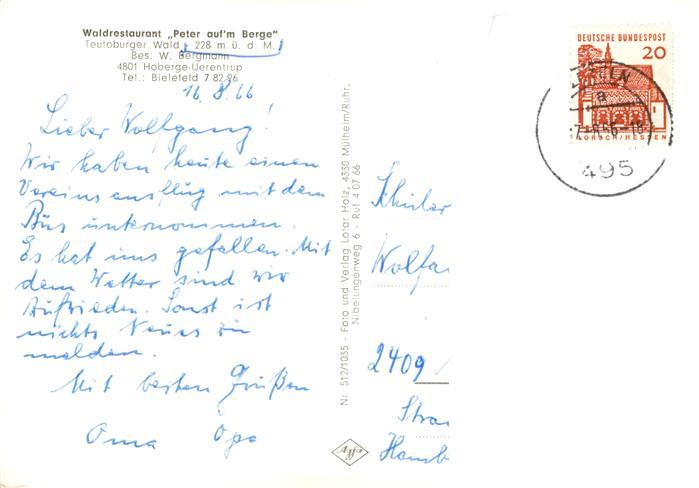 Waldrestaurant „Peter auf'm Berge"
Teutoburger Wald - 228 m ü. d. M.
Bes. W. Bergmann
4801 Hoberge-Uerentrup
Tel.: Bielefeld 7 82 96
16.8.66
Lieber Wolfgang!
Wir haben heute einen
Vereinsausflug mit dem
Bus unternommen.
Es hat uns gefallen. Mit
dem Wetter sind wir
zufrieden. Sonst ist
nichts Neues zu
melden.
Mit besten Grüßen
Oma Opa
Nr. 512/1035 - Foto und Verlag Lotar Holz, 4330 Mülheim/Ruhr,
Nibelungenweg 6 - Ruf 4 07 66
Agfa
DEUTSCHE BUNDESPOST
20
LORSCH/HESSEN
a
495
Schüler
Wolfga
2409
Stra
Hamb